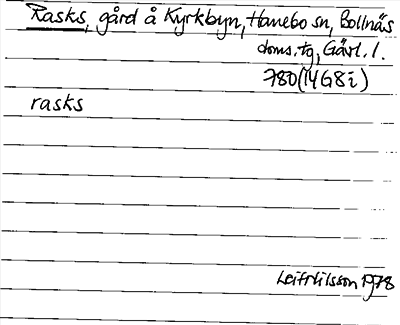 Rasks, gård å Kyrkbyn, Hanebo sn, Bollnäs
doms. tg, Gävl. l.
780 (14G8i)
rasks
Leif Nilsson 1978